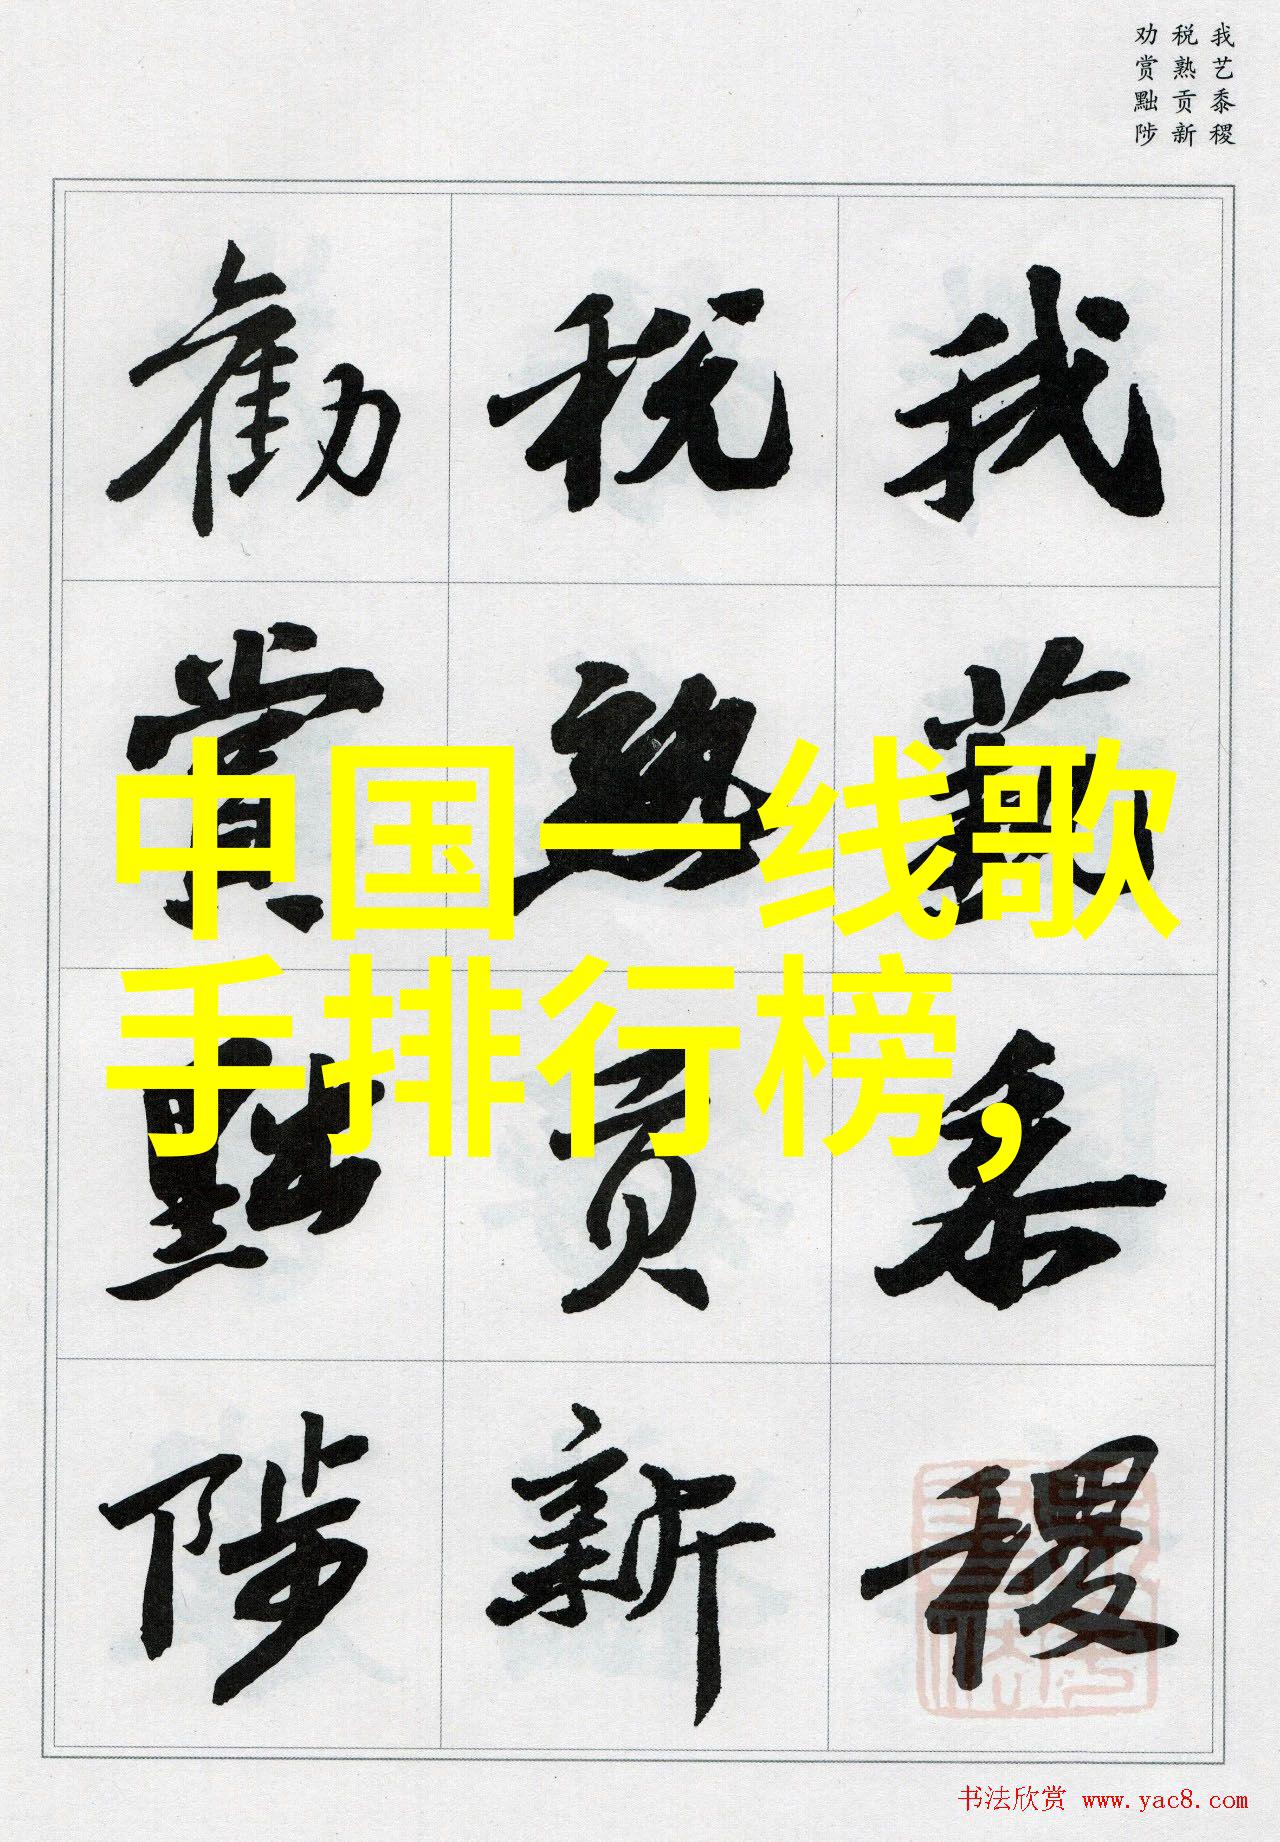 我艺黍稷
税熟贡新
劝赏黜陟
我藝黍稷
税熟貢新
勸賞黜陟
中国一线歌
手排行榜,
书法欣赏 www.yac8.com